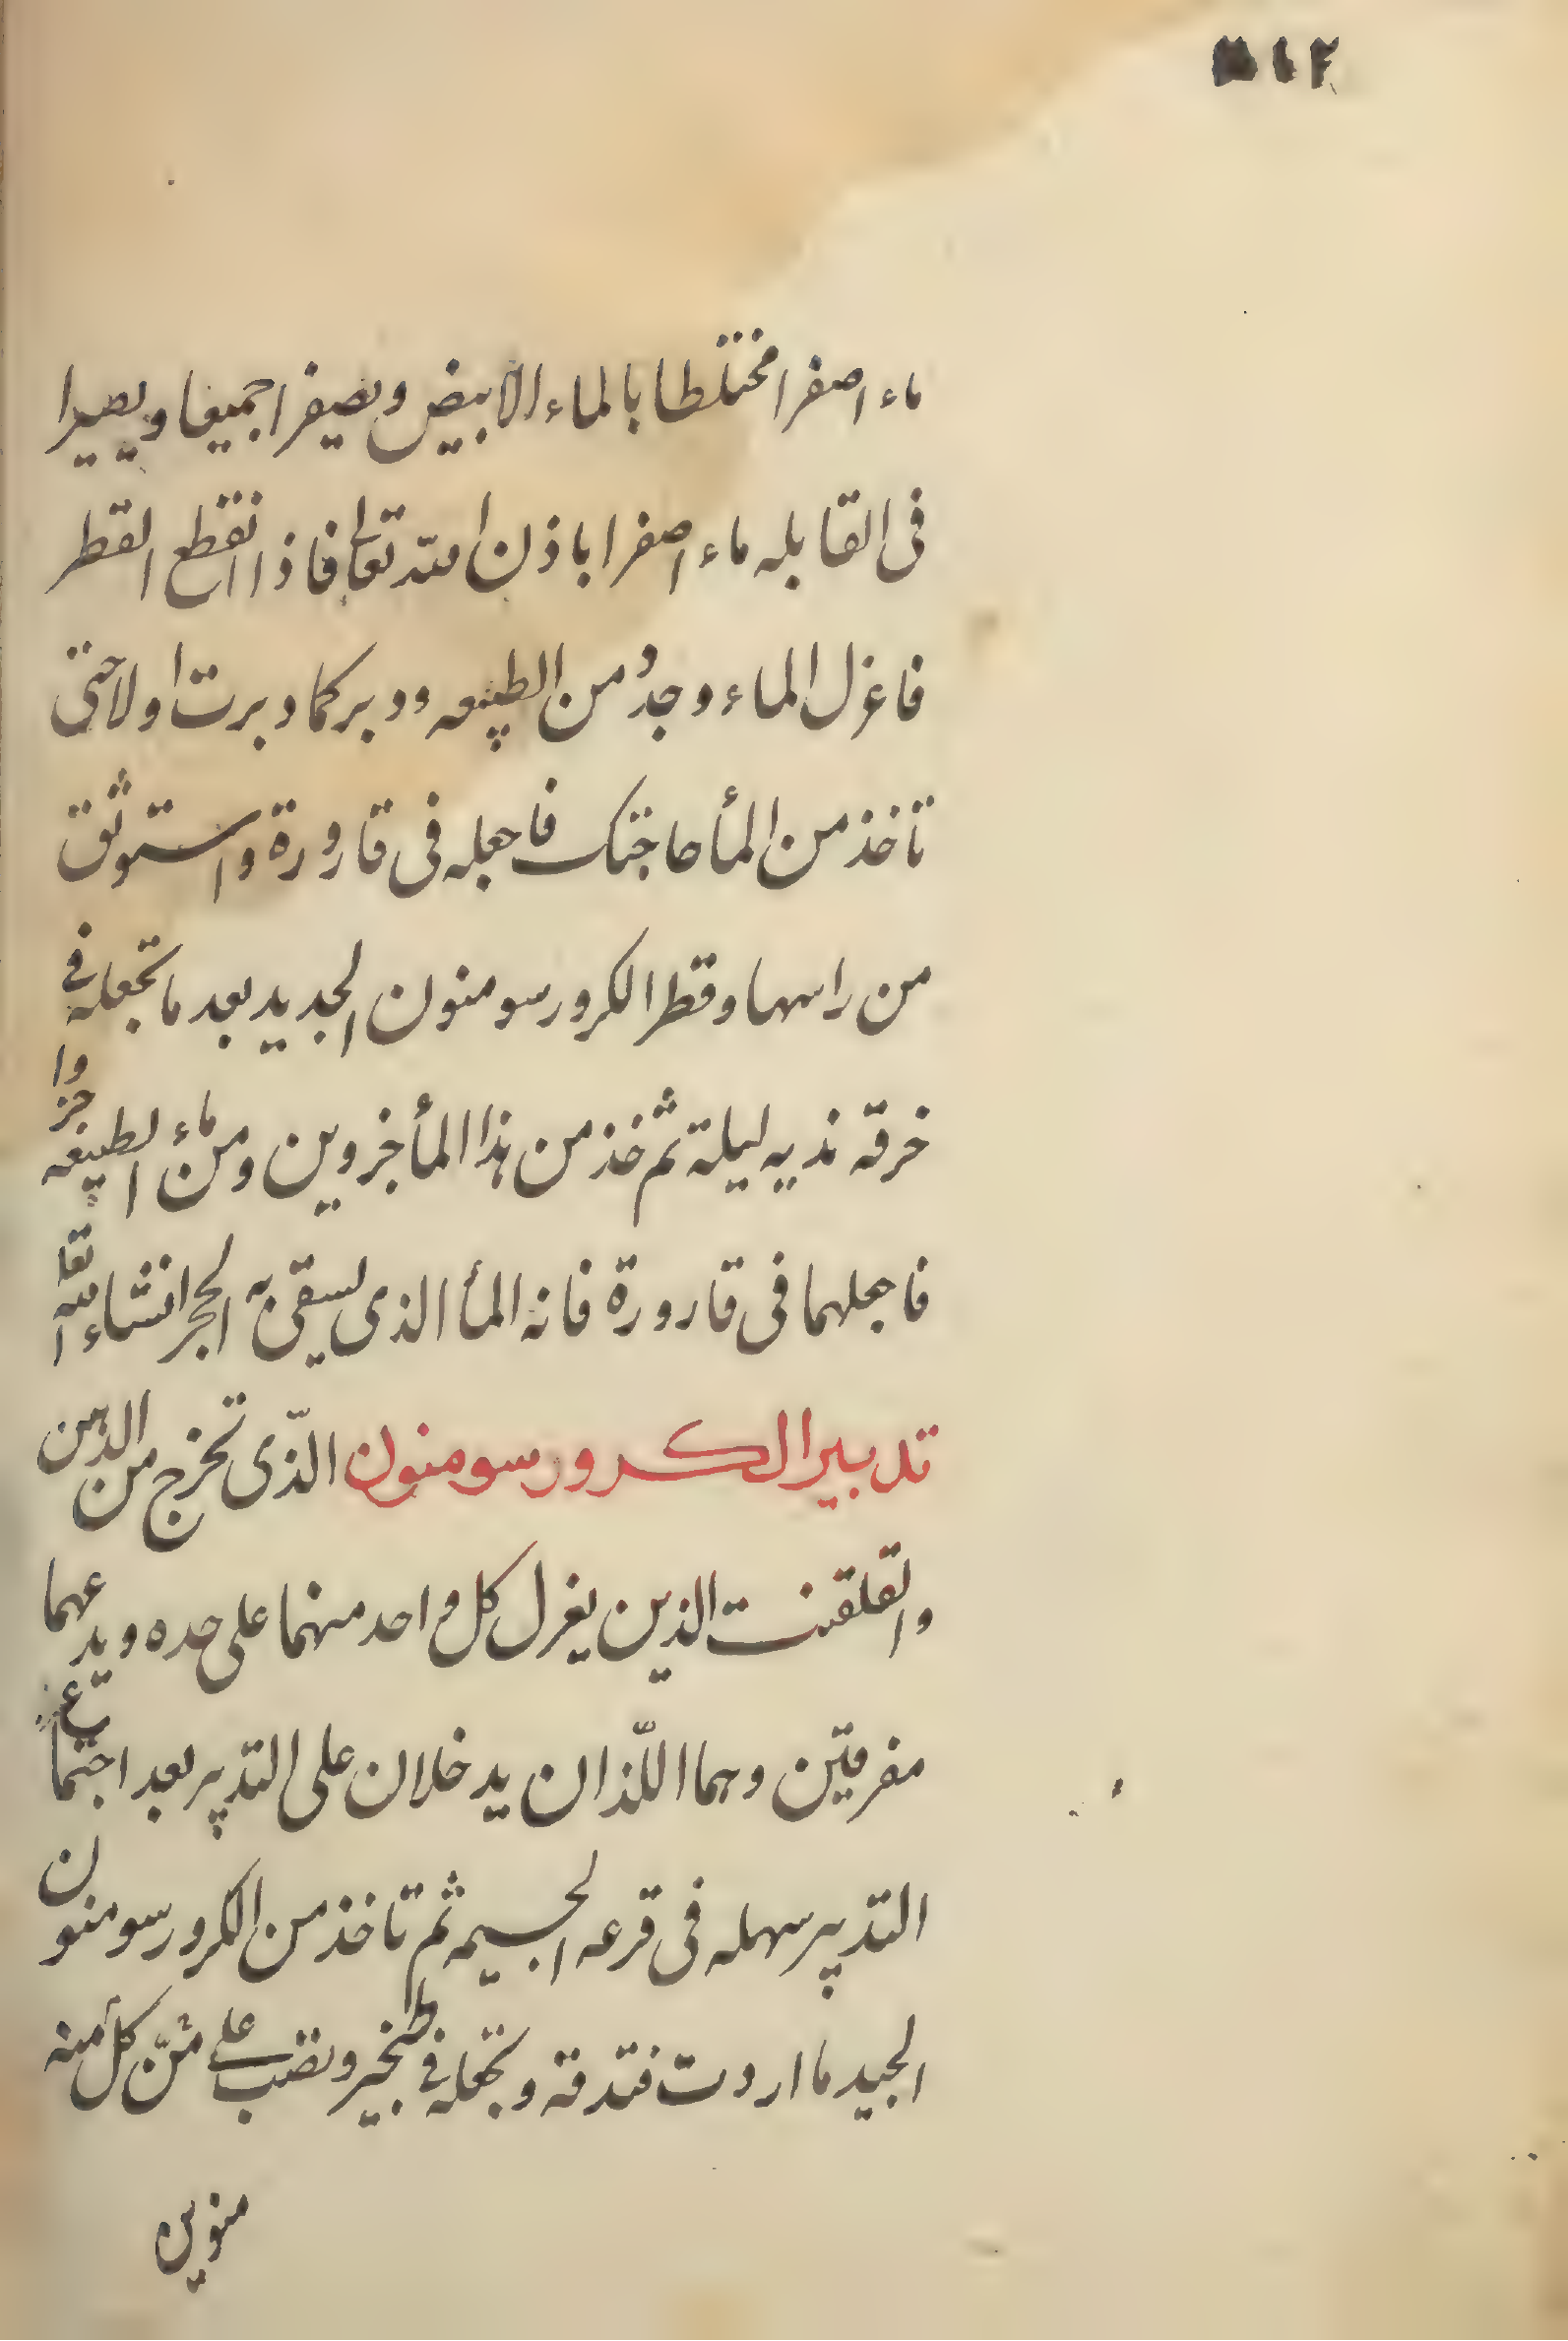 ماء اصفرا مختلطا بالماء الابيض ويصيفرا جميعا ويصيرا
فى القابله ماء اصفرا باذن الله تعالى فاذا انقطع القطر
فاغزل الماء وجدد من الطبيعه ودبر كما دبرت اولا حتى
تاخذ من المأ حاجتك فاجعله فى قارورة واستوثق
من راسها وقطر الكرورسومنون الجديد بعد ما تجعله فى
خرقه نديه ليلة ثم خذ من هذا المأ جزوين ومن ماء الطبيعه جزوا
فاجعلهما فى قارورة فانه المأ الذى يسقى به الحجر انشاء الله تعا
تدبير الكرورسومنون الذى تخرج من الدهن
والقلقنت الذين يغزل كل واحد منهما على حده ويدعهما
مفرقين وهما اللذان يدخلان على التدبير بعد اجتماع
التدبير سهله فى قرعه الجسيمه ثم تاخذ من الكرورسومنون
الجيد ما اردت فتدقه وتجعله فى طنجير وتصب على من كل منه
منوين